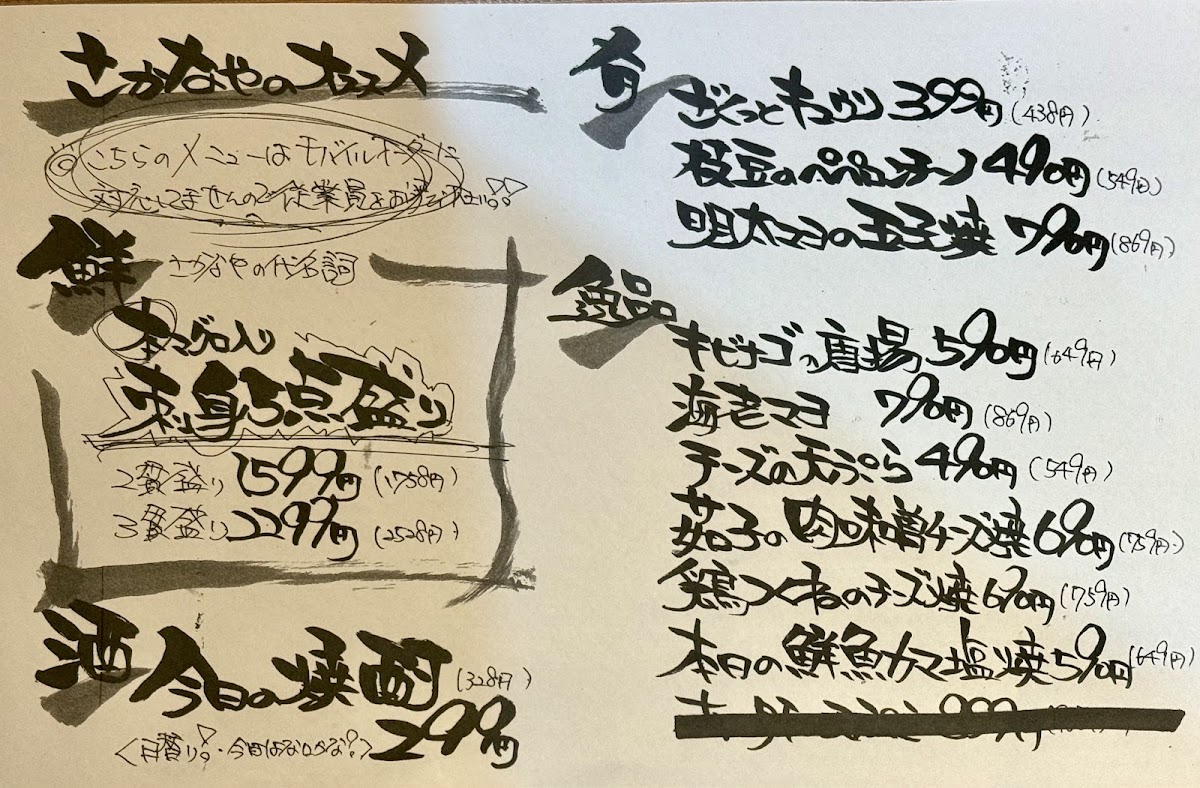 さかなやのオススメ
◎こちらのメニューはモバイルオーダーに
対応してませんので従業員をお呼び下さい!!
鮮 さかなやの代名詞
本マグロ入り
刺身5点盛り
2貫盛り 1599円(1758円)
3貫盛り 2299円(2528円)
酒 今日の焼酎(328円)
299円
<日替り!・今日はなにかな?>
肴 ざくっとキュウリ 399円(438円)
枝豆のペペロンチーノ 490円(549円)
明太マヨの玉子焼 790円(869円)
逸品
キビナゴの唐揚 590円(649円)
海老マヨ 790円(869円)
チーズの天ぷら 490円(549円)
茄子の肉味噌チーズ焼 690円(759円)
鶏つくねのチーズ焼 690円(759円)
本日の鮮魚カマ塩焼 590円(649円)